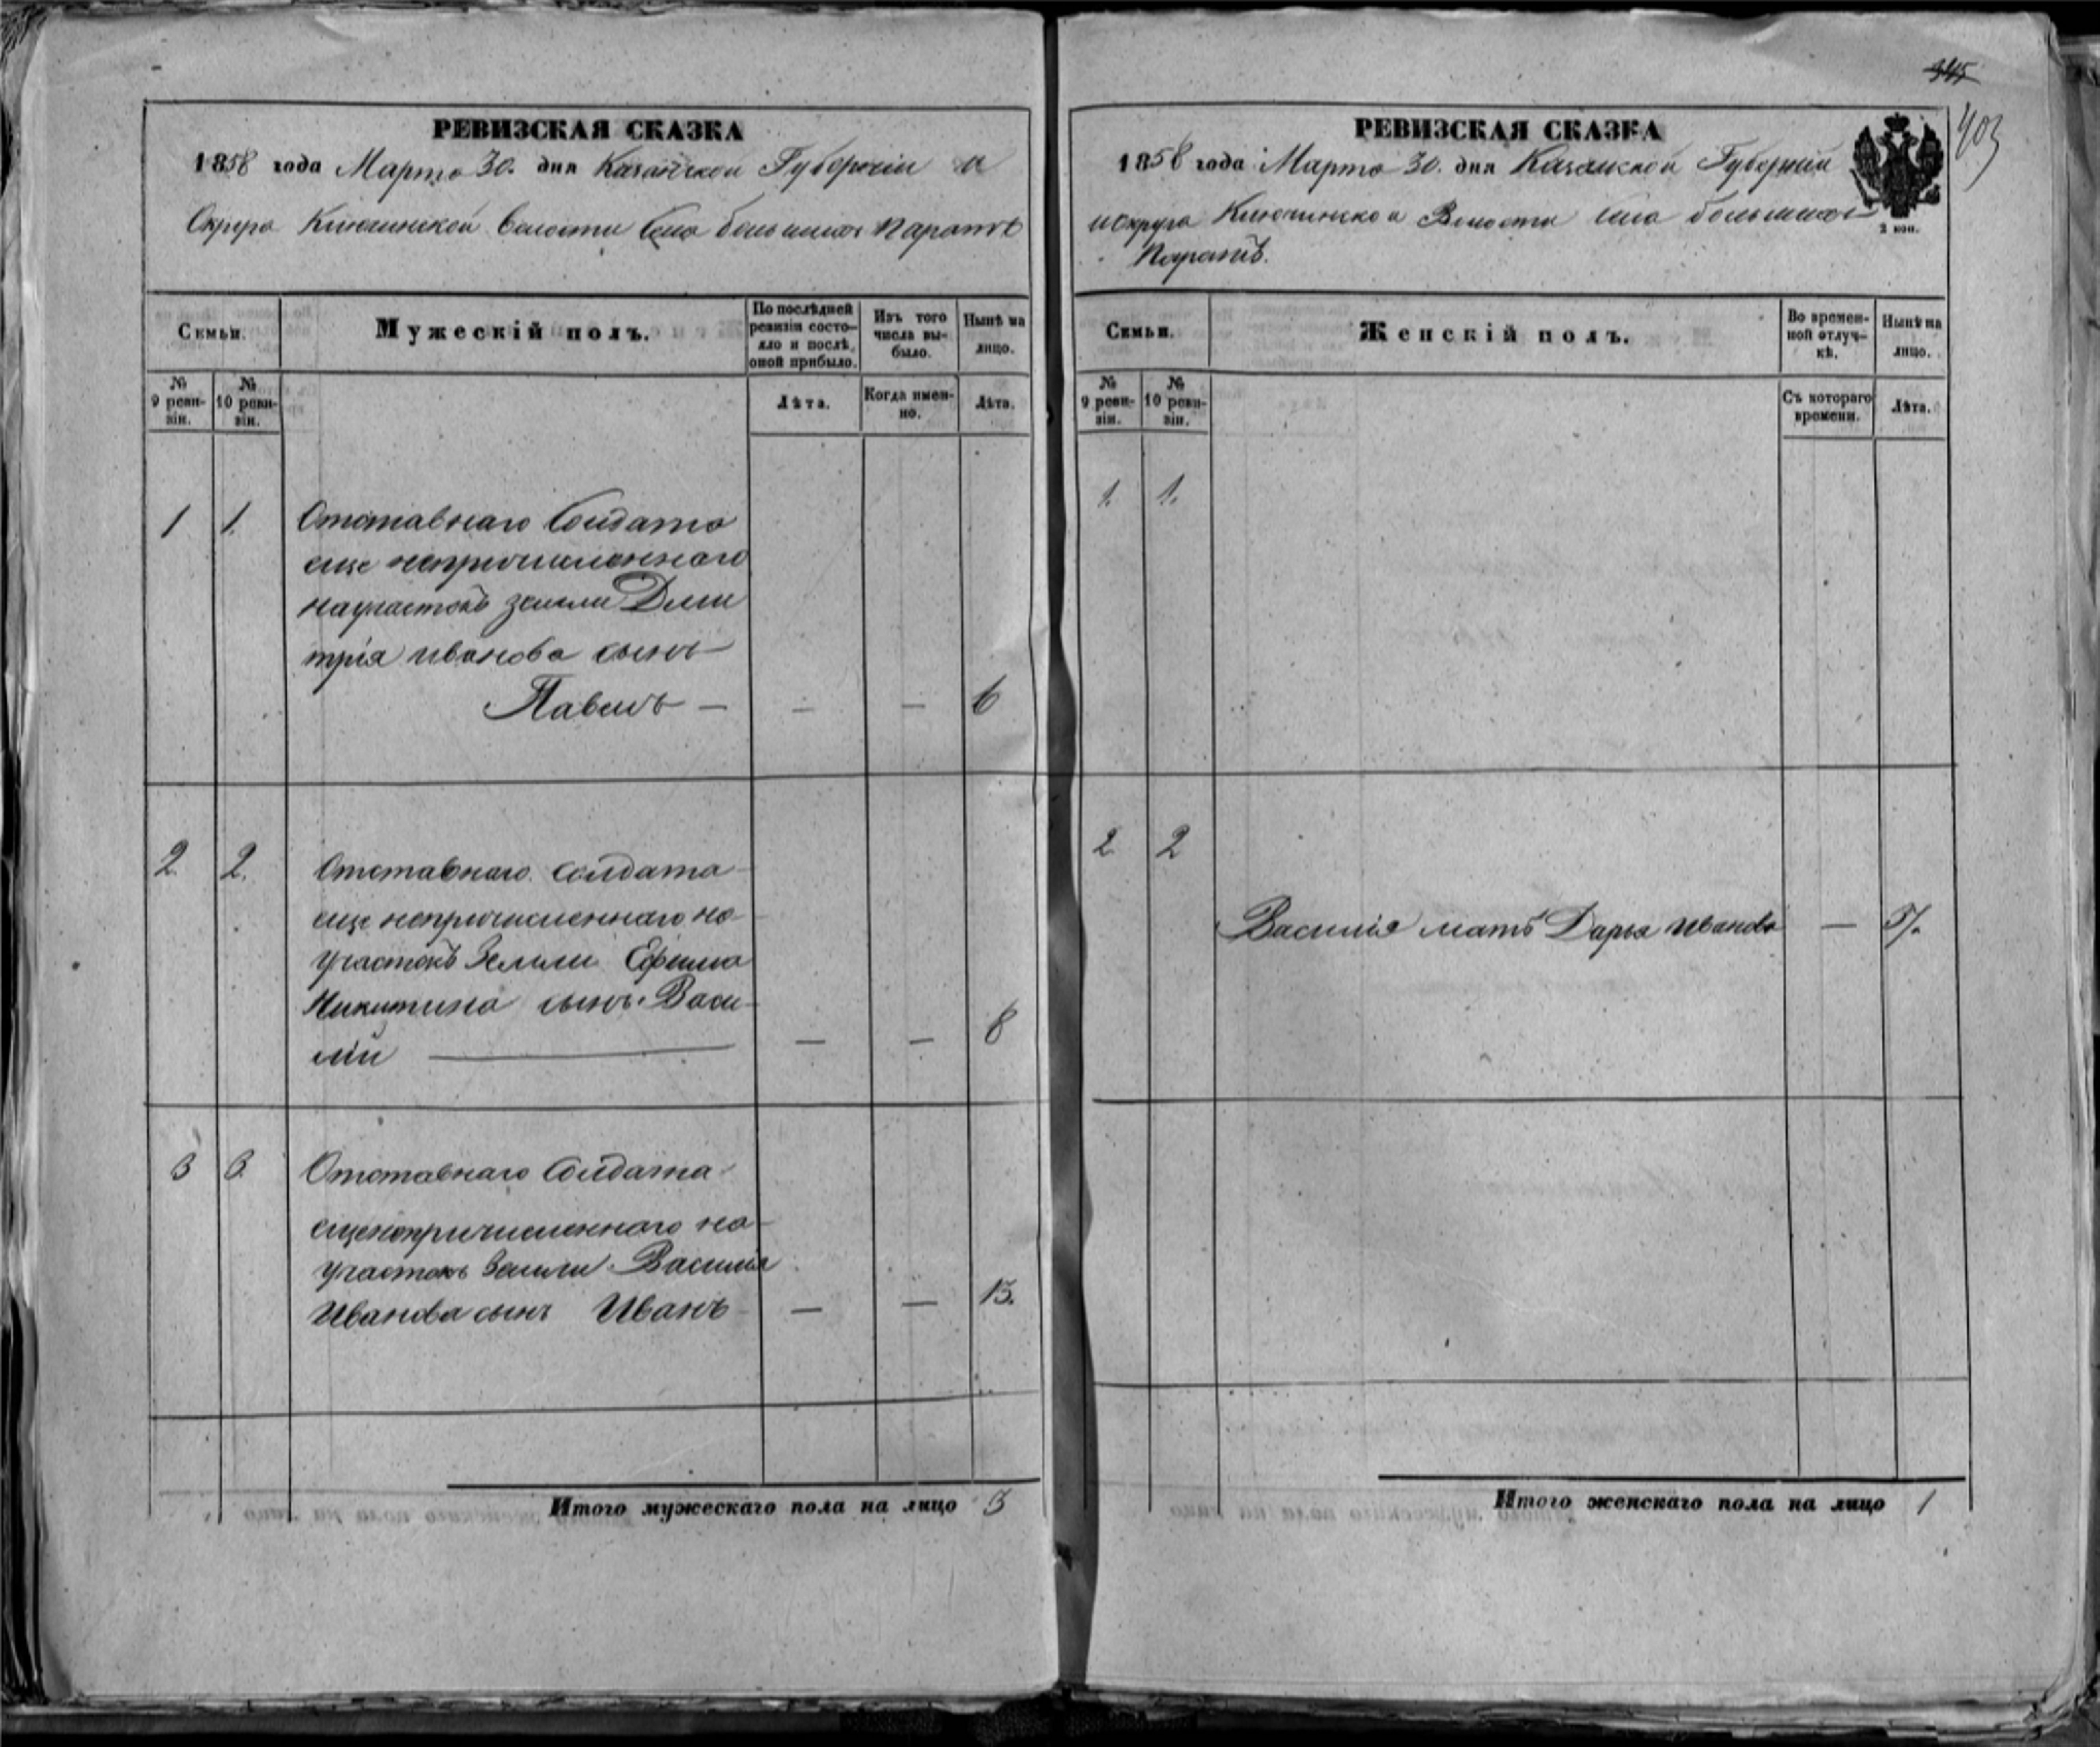 345
403
РЕВИЗСКАЯ СКАЗКА
1858 года Марта 30. дня Казанской Губерніи и
Округа Ключинской Волости Села большихъ Паратъ
Семьи.
Мужескій полъ.
По послѣдней ревизіи состояло и послѣ оной прибыло.
Изъ того числа выбыло.
Нынѣ на лицо.
№ 9 ревизіи.
№ 10 ревизіи.
Лѣта.
Когда именно.
Лѣта.
1 1.
Отставнаго Солдата
еще непричисленнаго
научастокъ земли Дми
трія иванова сынъ
Павелъ — — — 6
2. 2.
Отставнаго солдата
еще непричисленнаго на
участокъ Земли Ефима
Никитина сынъ Васи-
лій — — — 8
3 3.
Отставнаго Солдата
ещенепричисленнаго на
участокъ Земли Василія
Иванова сынъ Иванъ — — 13.
Итого мужескаго пола на лицо 3
РЕВИЗСКАЯ СКАЗКА
1858 года Марта 30. дня Казанской Губерніи
и Округа Ключинской Волости Села большихъ
Паратъ.
2 коп.
Семьи.
Женскій полъ.
Во временной отлучкѣ.
Нынѣ на лицо.
№ 9 ревизіи.
№ 10 ревизіи.
Съ котораго времени.
Лѣта.
1. 1.
2 2
Василія мать Дарья Иванова — 51.
Итого женскаго пола на лицо 1